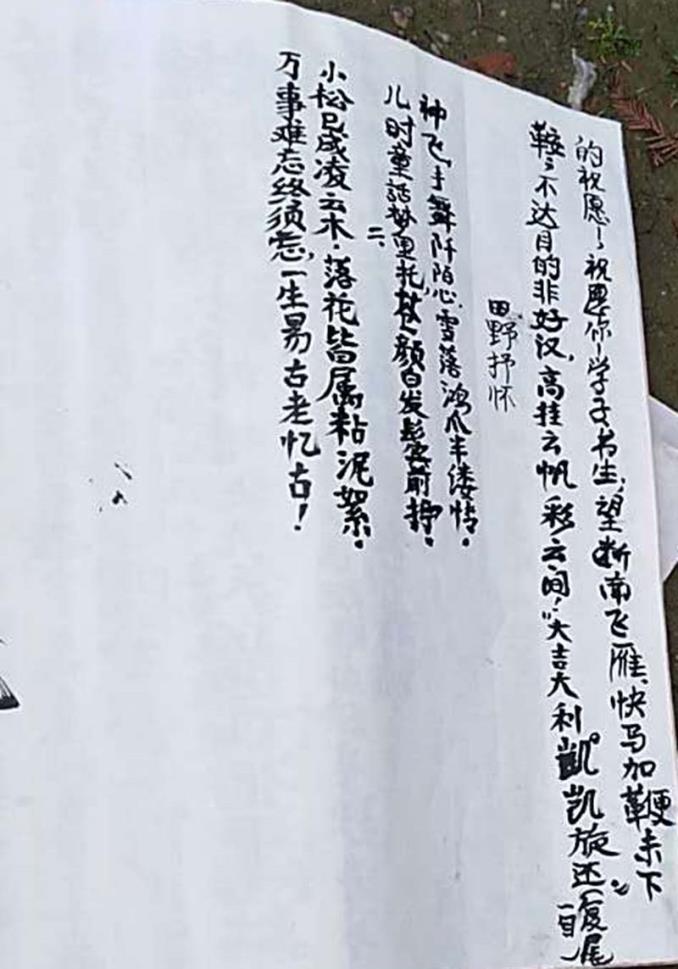 的祝愿、祝愿你！学子书生，望断南飞雁，快马加鞭未下
鞍，不达目的非好汉，高挂云帆彩云间！"大吉大利凯旋还"
田野抒怀
神飞手舞阡陌心，雪落鸿爪半偻情。
儿时童话梦里托，苍颜白发前挣。
二、
小松已成凌云木，落花皆属粘泥絮。
万事难忘终须忘，一生易古老忆古！